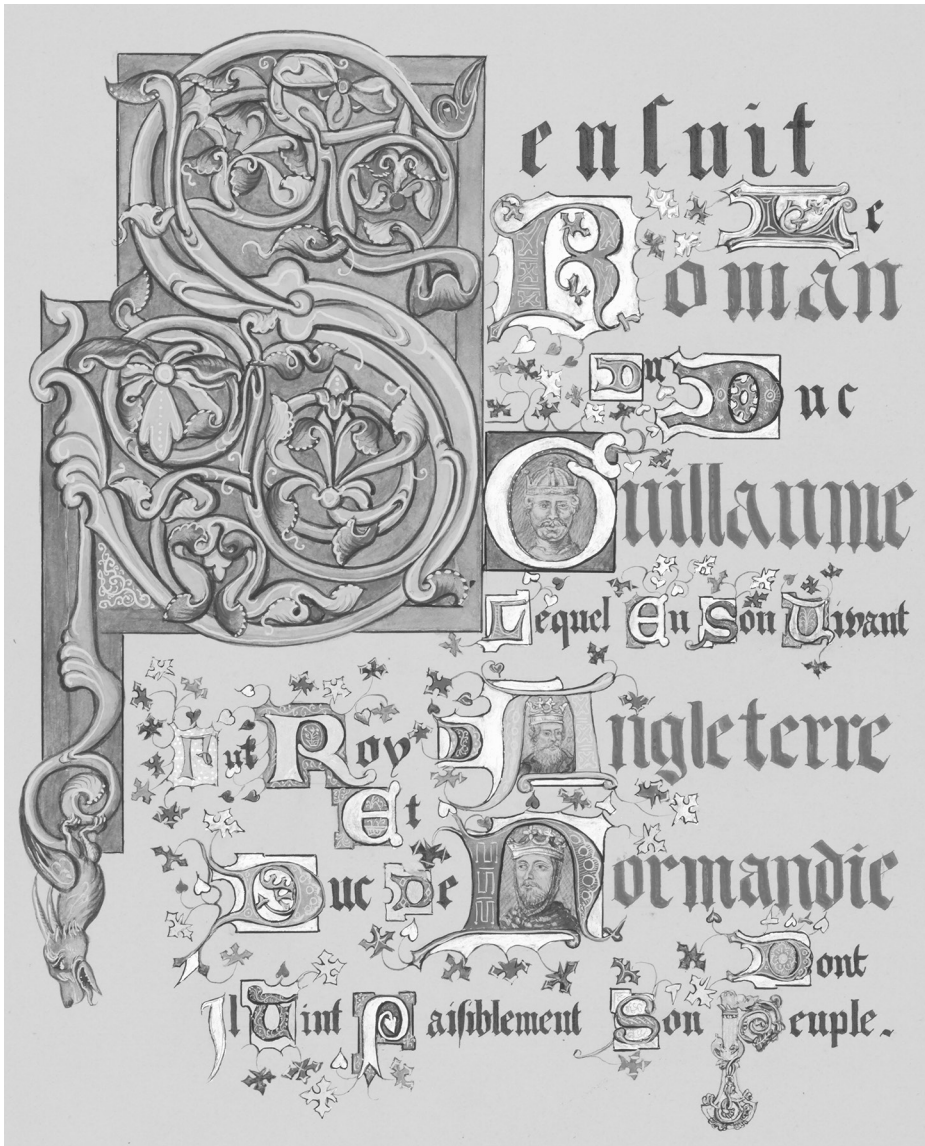 Senſuit
Le
Roman
Du Duc
Guillaume
Lequel En Son Vivant
Fut Roy D'Angleterre
Et
Duc De Normandie
Dont
Il Tint Paiſiblement Son Peuple.